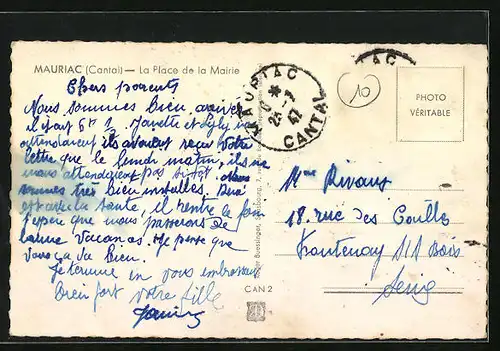 MAURIAC (Cantal) — La Place de la Mairie
Chers parents
Nous sommes bien arrivés
il était 6h Josette et
attendaient ils avaient reçu votre
lettre que le lundi matin, ils ne
nous attendaient pas si tôt. Nous
sommes très bien installés.
la santé, il rentre la faim
j'espère que nous passerons de
bonne vacances. Je pense que
vous ça va bien.
Je termine en vous embrassant
bien fort votre fille
MAURIAC
CANTAL
47
10
PHOTO
VÉRITABLE
Mme Rivaux
18. rue des
Fontenay S/S Bois
Seine
CAN 2